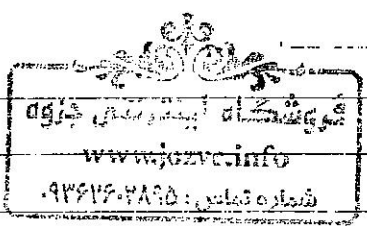 فروشگاه اینترنتی جزوه
www.jozve.info
شماره تماس : ۰۹۳۶۷۶۰۲۸۹۵